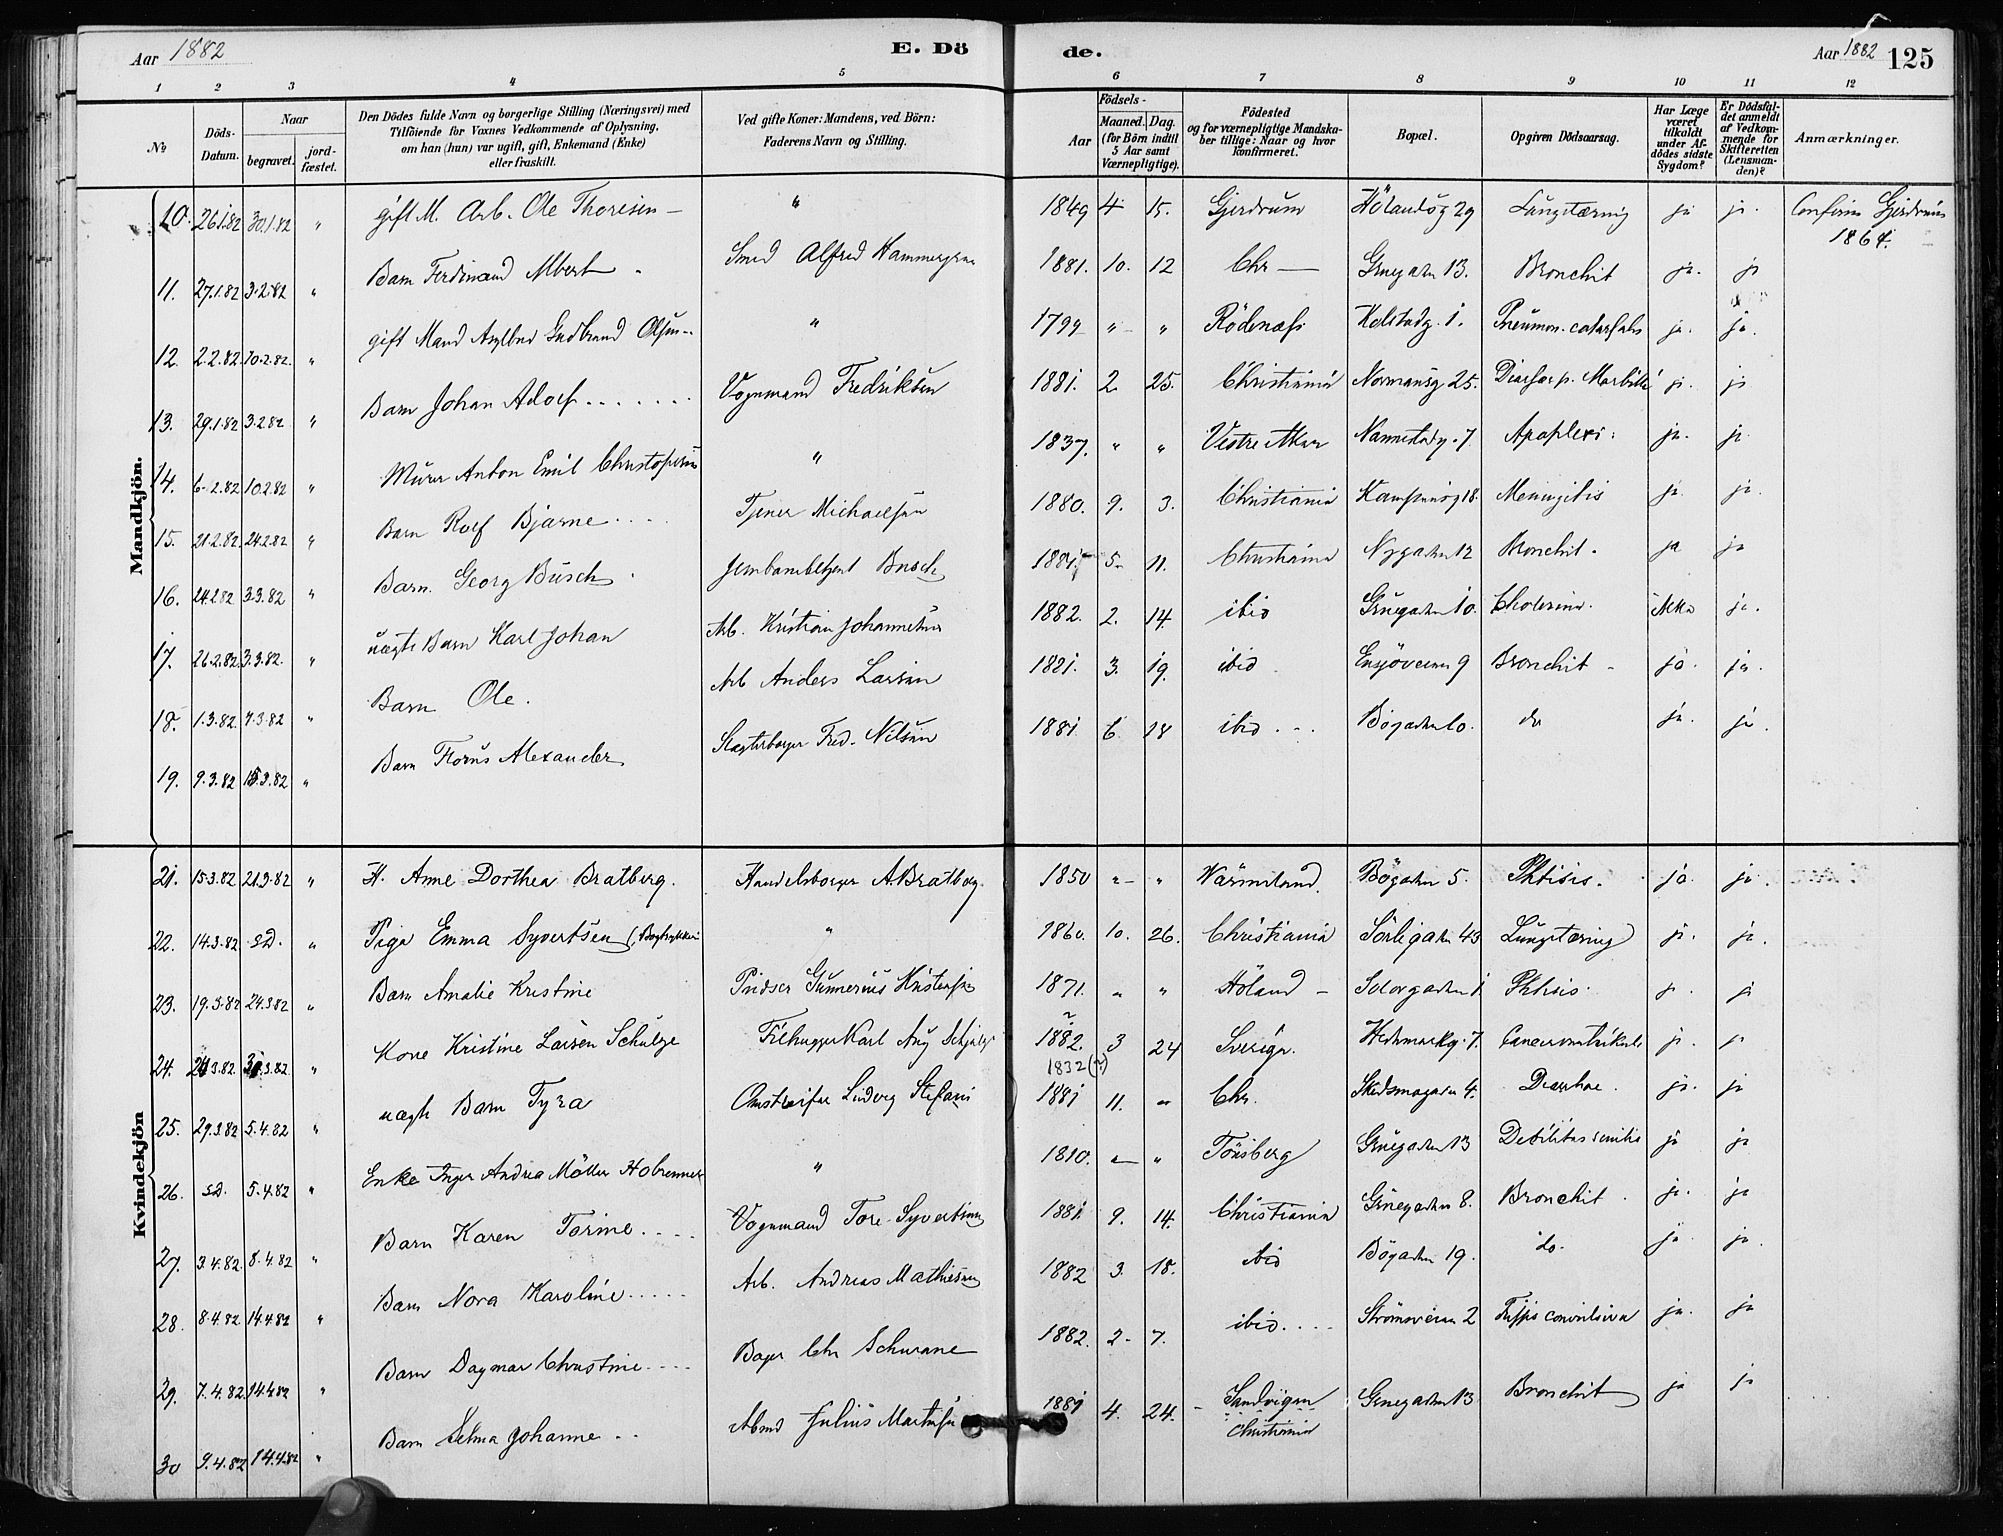 Aar 1882 E. Dö de. Aar 1882 125
1 2 3 4 5 6 7 8 9 10 11 12
No
Döds-Datum.
Naar
begravet.
jord-fæstet.
Den Dödes fulde Navn og borgerlige Stilling (Næringsvei) med
Tilföiende for Voxnes Vedkommende af Oplysning,
om han (hun) var ugift, gift, Enkemand (Enke)
eller fraskilt.
Ved gifte Koner: Mandens, ved Börn:
Faderens Navn og Stilling.
Födsels-
Aar
Maaned. Dag.
(for Börn indtil
5 Aar samt
Værnepligtige).
Födested
og for værnepligtige Mandska-
ber tillige: Naar og hvor
konfirmeret.
Bopæl.
Opgiven Dödsaarsag.
Har Læge
været
tilkaldt
under Af-
dödes sidste
Sygdom?
Er Dödsfal-
det anmeldt
af Vedkom-
mende for
Skifteretten
(Lensman-
den)?
Anmærkninger.
Mandkjön.
10. 26.1.82 30.1.82 " gift M. Arb. Ole Thoresen — " 1849 4 15. Gjerdrum Hölandsg 29 Lungetæring ja ja. Confirm Gjerdrum
1864.
11. 27.1.82 3.2.82 " Barn Ferdinand Albert Smed Alfred Hammergren 1881. 10. 12 Chr — Gruegaden 13. Bronchit ja. ja
12. 2.2.82. 10.2.82. " gift Mand Gudbrand Olsen " 1799 " " Rödenæs Kolstadg. 1. Pneumon. catarhalis ja. ja.
13. 29.1.82 3.2.82 " Barn Johan Adolf Vognmand Fredriksen 1881. 2 25. Christiania Normansg. 25. Diarhoe p. Morbilli ja. ja
14. 6.2.82 10.2.82 " Murer Anton Emil Christophersen " 1837. " " Vestre Aker Nannestadg. 7 Apoplexi. ja. ja
15. 21.2.82. 24.2.82 " Barn Rolf Bjarne Tjener Michaelsen 1880. 9. 3. Christiania Kampensg 18. Meningitis ja. ja.
16. 24.2.82 3.3.82 " Barn. Georg Busch. Jernbanebetjent Busch 1881 5 11. Christiania Nygaden 12 Bronchit. ja ja
17. 26.2.82. 3.3.82. " uægte Barn Karl Johan Arb. Kristian Johannesen 1882. 2. 14. ibid Gruegaden 10. Cholerine. ikke ja.
18. 1.3.82. 7.3.82 " Barn Ole. Arb Anders Larsen 1881. 3. 19. ibid Ensjöveien 9 Bronchit ja. ja.
19. 9.3.82 15.3.82 " Barn Thorus Alexander Slagterborger Fred. Nilsen 1881 6 18 ibid Bögaden 10. do ja. ja.
Kvindekjön
21. 15.3.82 21.3.82 " H. Anne Dorthea Bratberg. Handelsborger A. Bratberg. 1850 " " Värmeland. Bögaden 5. Phtisis. ja. ja.
22. 14.3.82 s.D. " Pige Emma Syvertsen " 1860. 10. 26. Christiania Sörligaden 43 Lungetæring ja. ja.
23. 19.3.82 24.3.82 " Barn Amalie Kristine Pudser Gunnerius Kristensen 1871. " " Höland — Solorgaden 1. Phtisis. ja. ja
24. 24.3.82. 31.3.82. " Kone Kristine Larsen Schulze Filhugger Karl Aug 1882. 3 24 Sverige. Hedemarkg. 7. Cancer ventriculi ja. ja
1832 (?)
25. 29.3.82 5.4.82 " uægte Barn Tyra Ludvig Stefani 1881 11. " Chr. Skedsmogaden 4. Diarrhoe. ja. ja
26. s.D. 5.4.82 " Enke Inger Andrea Möller " 1810. " " Tönsberg Gruegaden 13 Debilitas senilis ja ja
27. 3.4.82. 8.4.82 " Barn Karen Torine Vognmand Tore Syvertsen 1881. 9. 14. Christiania Gruegaden 8. Bronchit. ja. ja
28. 8.4.82 14.4.82 " Barn Nora Karoline Arb. Andreas Mathiesen 1882 3. 18. ibid Bögaden 19. do. ja ja.
29. 7.4.82. 14.4.82 " Barn Dagmar Christine Bager Chr Schurane 1882. 2 7. ibid Strömsveien 2 Tussis convulsiva ja. ja
30 9.4.82 14.4.82 " Barn Selma Johanne Julius Martinsen 1881 4. 24. Sandvigen Gruegaden 13 Bronchit ja ja
Christiania